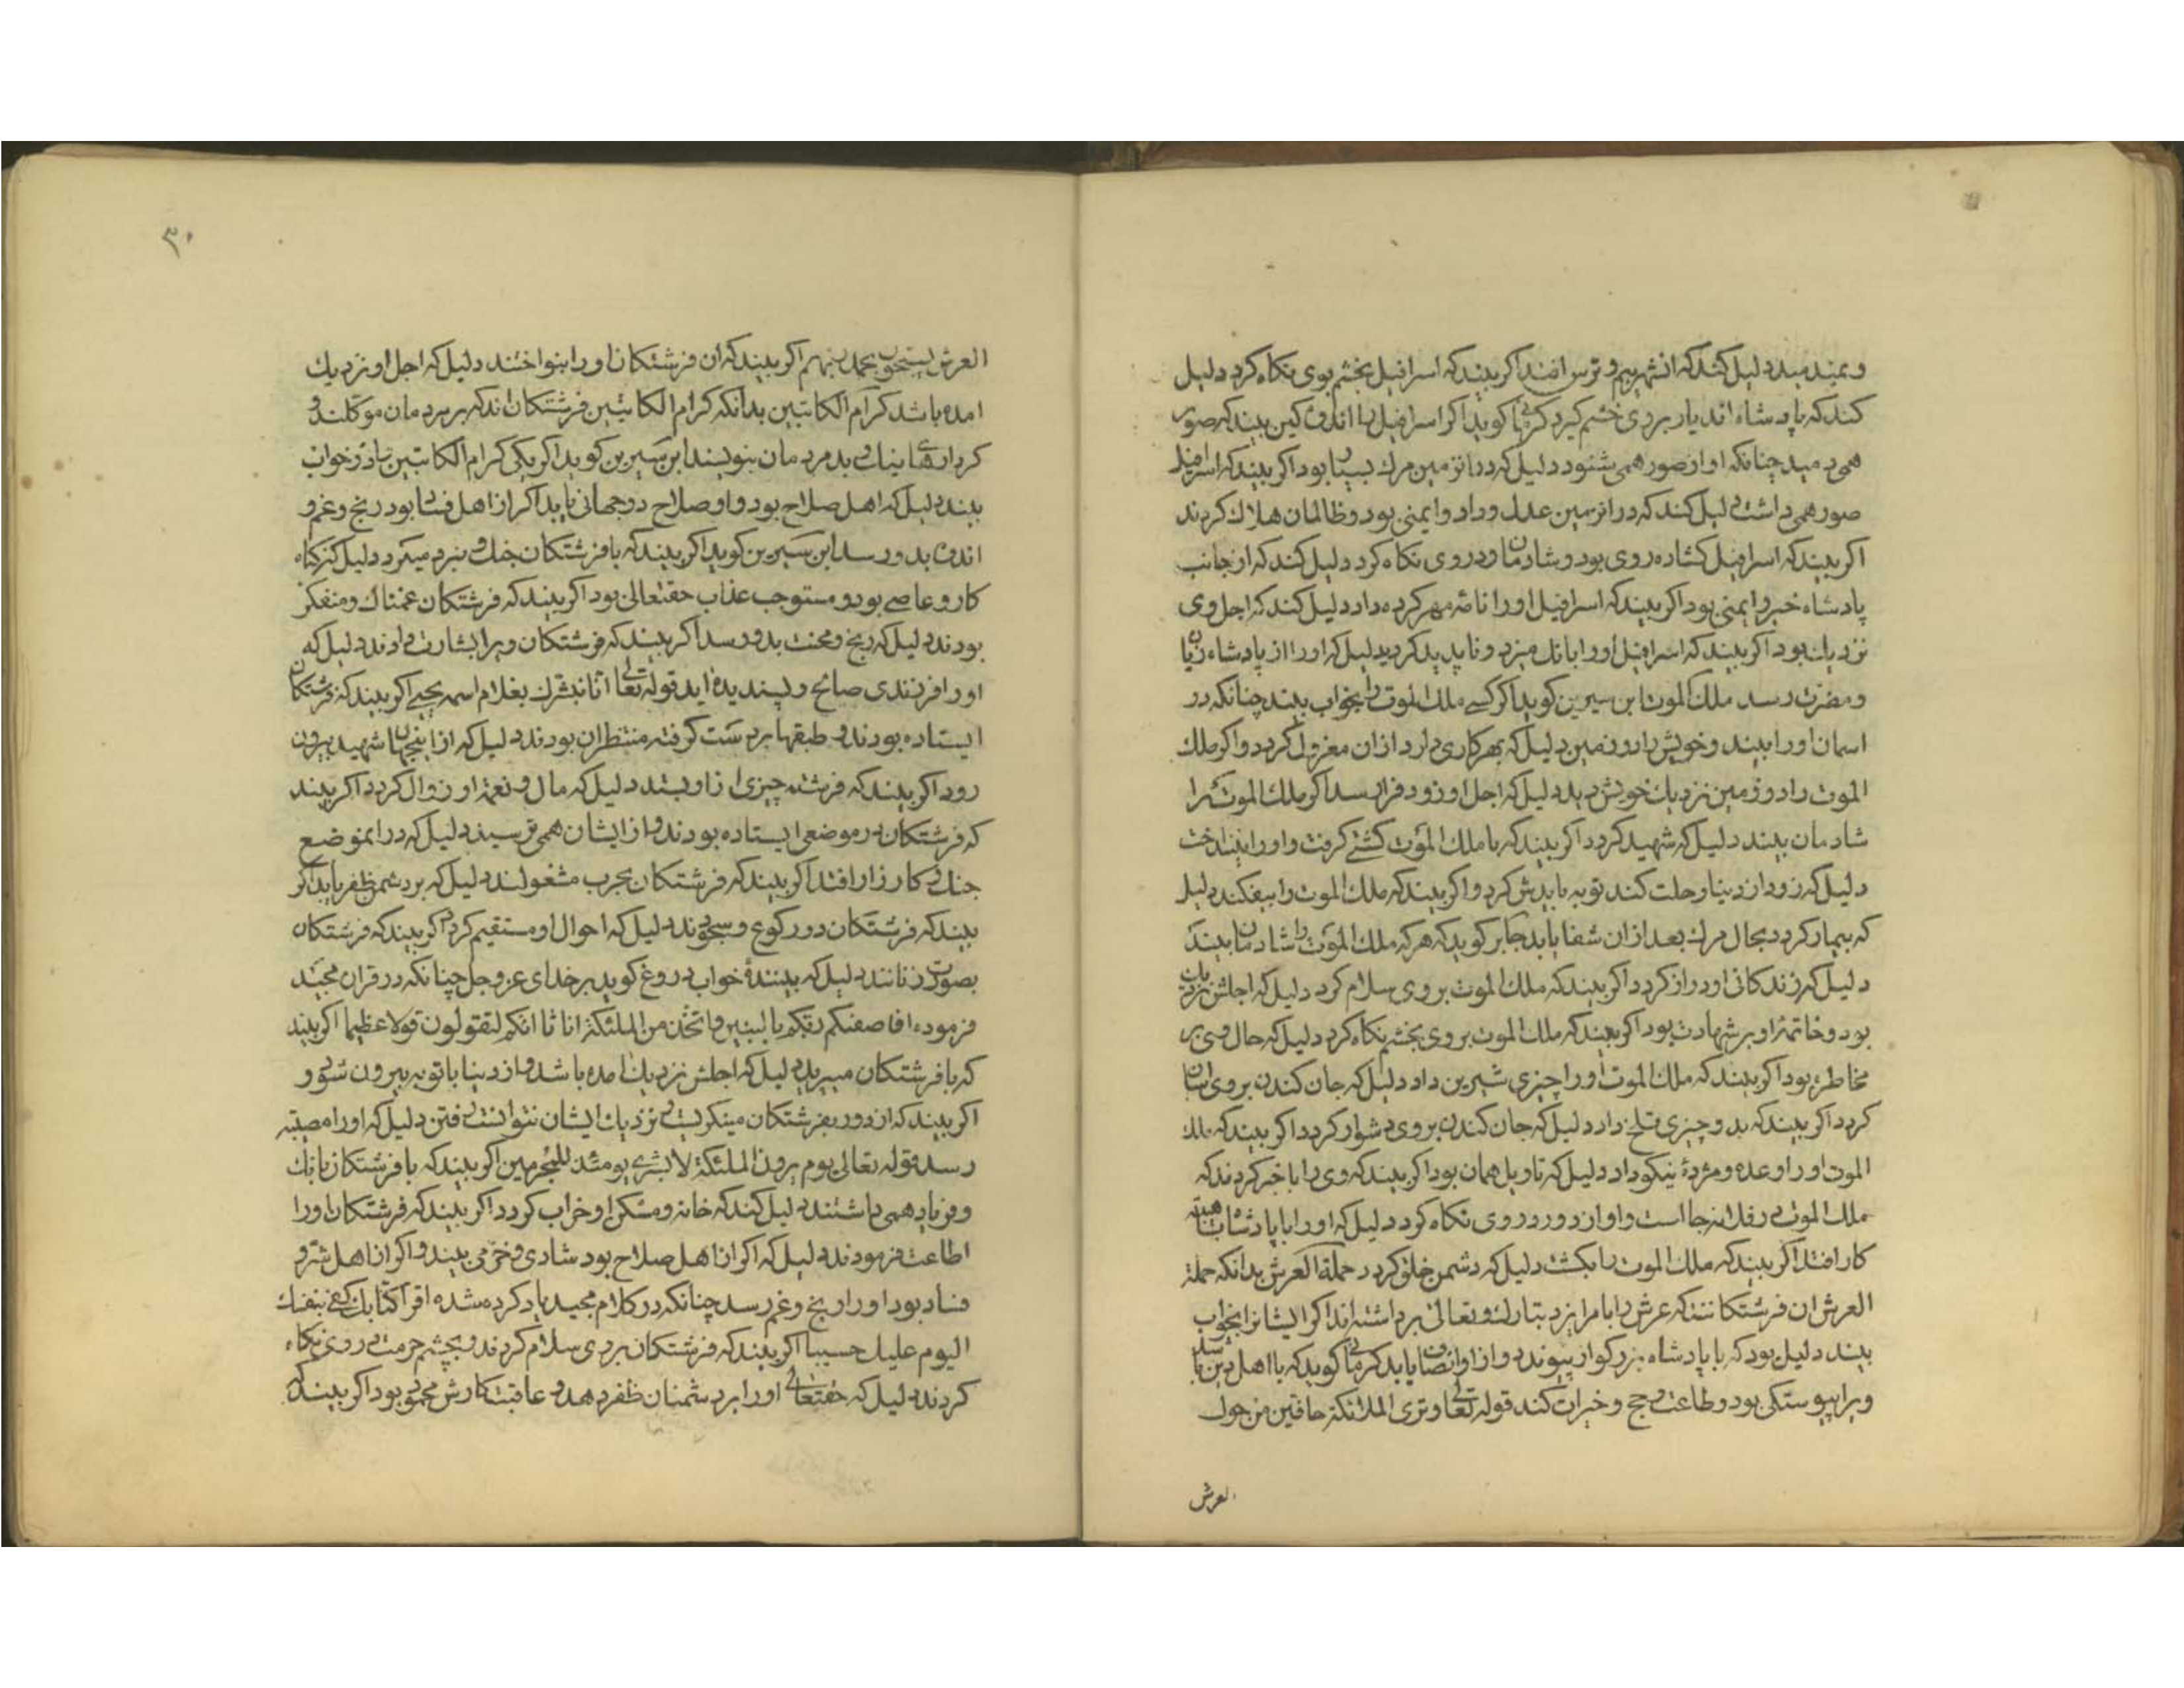 و بمیند میدد دلیل کند که انشهر بیم و ترس افتد اکر بیند که اسرافیل بخشم بوی نکاه کرد دلیل
کند که پادشاه اندیار بروی خشم کیرد کرمانی کوید اکر اسرافیل را اندوه کین بیند که صور
همی دمید چنانکه اواز صور همی شنود دلیل که در انزمین مرك بسیار بود اکر بیند که اسرافیل
صور همی داشت دلیل کند که در انزمین عدل وداد و ایمنی بود و ظالمان هلاك کردند
اکر بیند که اسرافیل کشاده روی بود و شادمان و در وی نکاه کرد دلیل کند که از جانب
پادشاه خبر و ایمنی بود اکر بیند که اسرافیل اورا نامه مهر کرده داد دلیل کند که اجل وی
نزدیك بود اکر بیند که اسرافیل اورا بانك میزد و ناپدید کردید دلیل که اورا از پادشاه زیان
ومضرت رسد ملك الموت ابن سیرین کوید اکر کسی ملك الموت را بخواب بیند چنانکه در
اسمان اورا بیند و خویش را در زمین دلیل که بهر کاری دارد ازان معزول کردد و اکر ملك
الموت را در زمین نزدیك خویش دید دلیل که اجل او زود فراز رسد اکر ملك الموت را
شادمان بیند دلیل که شهید کردد اکر بیند که با ملك الموت کشتی کرفت و اورا بینداخت
دلیل که زود از دنیا رحلت کند توبه بایدش کرد و اکر بیند که ملك الموت را بیفکند دلیل
که بیمار کردد بحال مرك بعد ازان شفا یابد جابر کوید که هر که ملك الموت را شادمان بیند
دلیل که زندکانی او دراز کردد اکر بیند که ملك الموت بر وی سلام کرد دلیل که اجلش نزدیك
بود و خاتمهٔ او بر شهادت بود اکر بیند که ملك الموت بر وی بخشم نکاه کرد دلیل که حال وی بر
مخاطره بود اکر بیند که ملك الموت اورا چیزی شیرین داد دلیل که جان کندن بر وی اسان
کردد اکر بیند که بدو چیزی تلخ داد دلیل که جان کندن بر وی دشوار کردد اکر بیند که ملك
الموت اورا وعده و مژدهٔ نیکو داد دلیل که تاویل همان بود اکر بیند که وی را با خبر کردند که
ملك الموت در فلان جا است و او از دور در وی نکاه کرد دلیل که اورا با پادشاه با هیبت
کار افتد اکر بیند که ملك الموت را بکشت دلیل که دشمن خلق کردد حملة العرش بدانکه حملة
العرش ان فرشتکانند که عرش را بامر ایزد تبارك و تعالی برداشته اند اکر ایشانرا بخواب
بیند دلیل بود که با پادشاه بزرکوار پیوندد و ازو انصاف یابد کرمانی کوید که با اهل دین باشد
ویرا پیوستکی بود و طاعت و حج و خیرات کند قوله تعالی وتری الملائکة حافین من حول
العرش
۳۰
العرش یسبحون بحمد ربهم اکر بیند که ان فرشتکان اورا بنواختند دلیل که اجل او نزدیك
امده باشد کرام الکاتبین بدانکه کرام الکاتبین فرشتکان اند که بر مردمان موکلند و
کردارهای نیك و بد مردمان بنویسند ابن سیرین کوید اکر یکی کرام الکاتبین را در خواب
بیند دلیل که اهل صلاح بود و او صلاح دوجهانی یابد اکر از اهل فساد بود رنج و غم و
اندوه بدو رسد ابن سیرین کوید اکر بیند که با فرشتکان جنك و نبرد میکرد دلیل کند کناه
کار و عاصی بود و مستوجب عذاب حقتعالی بود اکر بیند که فرشتکان غمناك و متفکر
بودند دلیل که رنج و محنت بدو رسد اکر بیند که فرشتکان ویرا بشارت دادند دلیل که
اورا فرزندی صالح و پسندیده اید قوله تعالی انا نبشرك بغلام اسمه یحیی اکر بیند که فرشتکان
ایستاده بودند و طبقها بر دست کرفته منتظران بودند دلیل که از اینجهان شهید بیرون
رود اکر بیند که فرشته چیزی از او بستد دلیل که مال و نعمة او زوال کردد اکر بیند
که فرشتکان در موضعی ایستاده بودند و از ایشان همی ترسیند دلیل که در انموضع
جنك و کارزار افتد اکر بیند که فرشتکان بحرب مشغولند دلیل که بر دشمن ظفر یابد اکر
بیند که فرشتکان در رکوع و سجودند دلیل که احوال او مستقیم کردد اکر بیند که فرشتکان
بصورت زنانند دلیل که بینندهٔ خواب دروغ کوید بر خدای عز وجل چنانکه در قران مجید
فرموده افاصفیکم ربکم بالبنین واتخذ من الملئکة اناثا انکم لتقولون قولا عظیما اکر بیند
که با فرشتکان میپرید دلیل که اجلش نزدیك امده باشد و از دنیا با توبه بیرون شود و
اکر بیند که از دور بفرشتکان مینکریست و نزدیك ایشان نتوانست رفتن دلیل که اورا مصیبة
رسد قوله تعالی یوم یرون الملئکة لا بشری یومئذ للمجرمین اکر بیند که با فرشتکان بانك
و فریاد همی داشتند دلیل کند که خانه و مسکن او خراب کردد اکر بیند که فرشتکان اورا
اطاعت فرمودند دلیل که اکر از اهل صلاح بود شادی و خرمی بیند و اکر از اهل شر و
فساد بود اورا رنج و غم رسد چنانکه در کلام مجید یاد کرده شده اقرا کتابك کفی بنفسك
الیوم علیك حسیبا اکر بیند که فرشتکان بر وی سلام کردند و بچشم حرمت در وی نکاه
کردند دلیل که حقتعالی اورا بر دشمنان ظفر دهد و عاقبت کارش محمود بود اکر بیند که